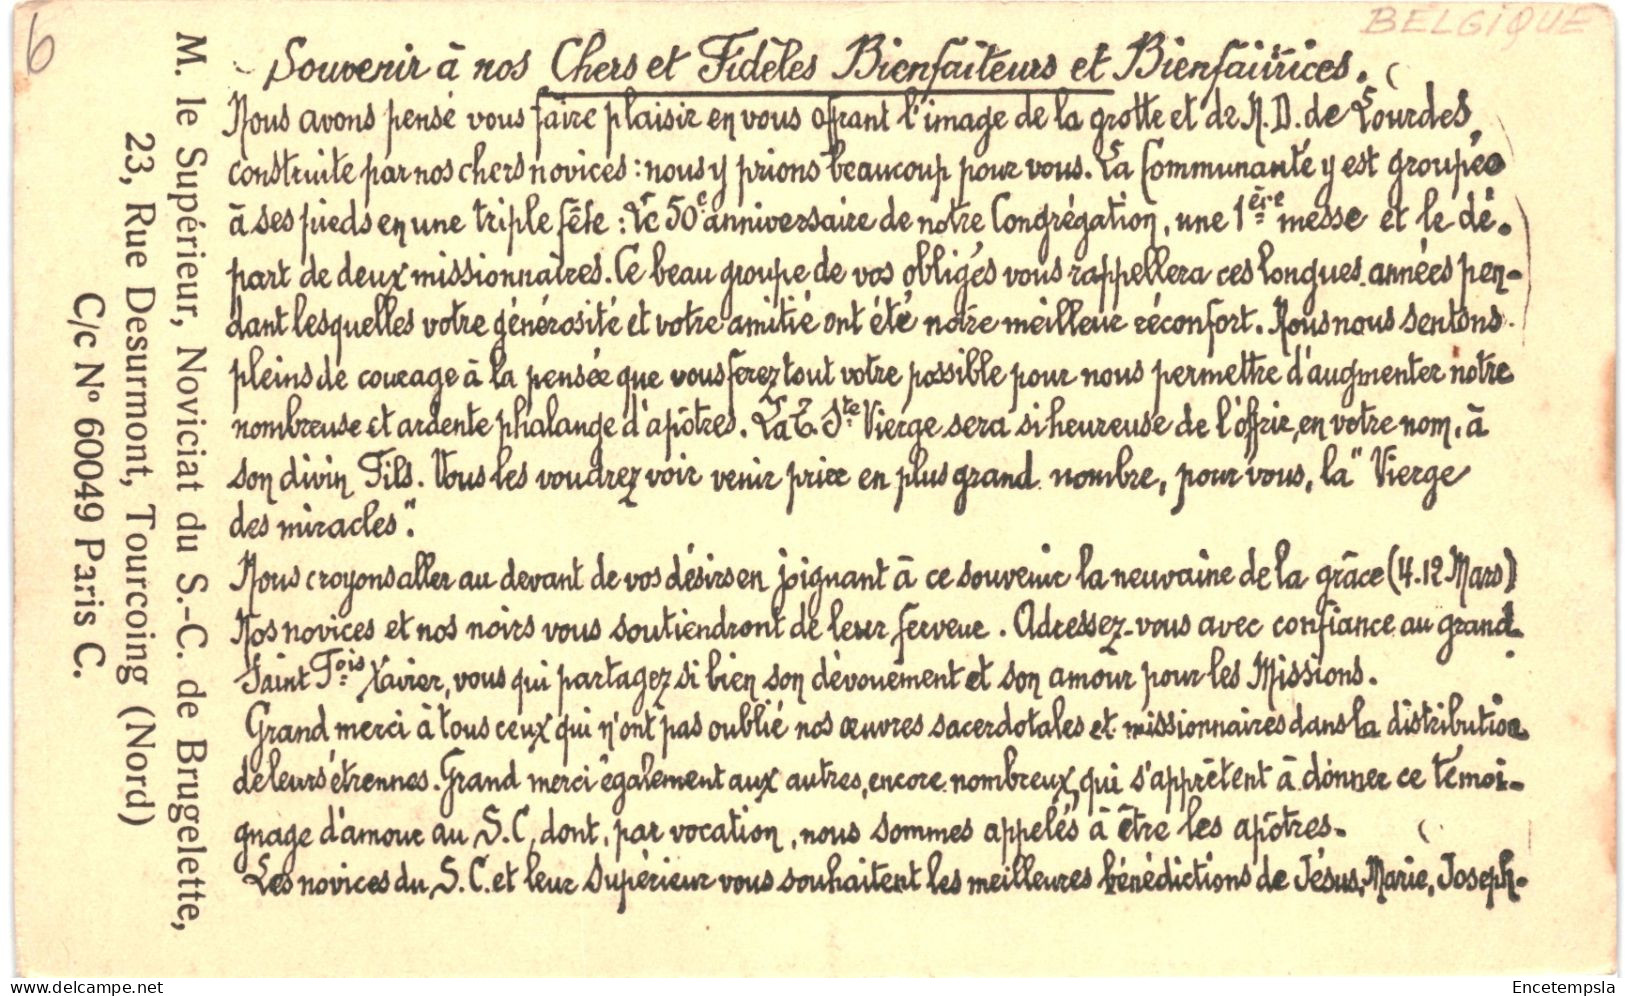 6
BELGIQUE
Souvenir à nos Chers et Fidèles Bienfaiteurs et Bienfaitrices.
Nous avons pensé vous faire plaisir en vous offrant l'image de la grotte et de N. D. de Lourdes,
construite par nos chers novices : nous y prions beaucoup pour vous. La Communauté y est groupée
à ses pieds en une triple fête : Le 50e anniversaire de notre Congrégation, une 1ère messe et le dé-
part de deux missionnaires. Ce beau groupe de vos obligés vous rappellera ces longues années pen-
dant lesquelles votre générosité et votre amitié ont été notre meilleur réconfort. Nous nous sentons
pleins de courage à la pensée que vous ferez tout votre possible pour nous permettre d'augmenter notre
nombreuse et ardente phalange d'apôtres. La T. Ste Vierge sera si heureuse de l'offrir, en votre nom, à
son divin Fils. Vous les voudrez voir venir prier en plus grand nombre, pour vous, la "Vierge
des miracles".
Nous croyons aller au devant de vos désirs en joignant à ce souvenir la neuvaine de la grâce (4-12 Mars)
Nos novices et nos noirs vous soutiendront de leur ferveur. Adressez-vous avec confiance au grand
Saint Fois Xavier, vous qui partagez si bien son dévouement et son amour pour les Missions.
Grand merci à tous ceux qui n'ont pas oublié nos œuvres sacerdotales et missionnaires dans la distribution
de leurs étrennes. Grand merci également aux autres, encore nombreux, qui s'apprêtent à donner ce témoi-
gnage d'amour au S.C, dont, par vocation, nous sommes appelés à être les apôtres.
Les novices du S.C. et leur Supérieur vous souhaitent les meilleures bénédictions de Jésus, Marie, Joseph.
M. le Supérieur, Noviciat du S.-C. de Brugelette,
23, Rue Desurmont, Tourcoing (Nord)
C/c N° 60049 Paris C.
delcampe.net
Encetempsla